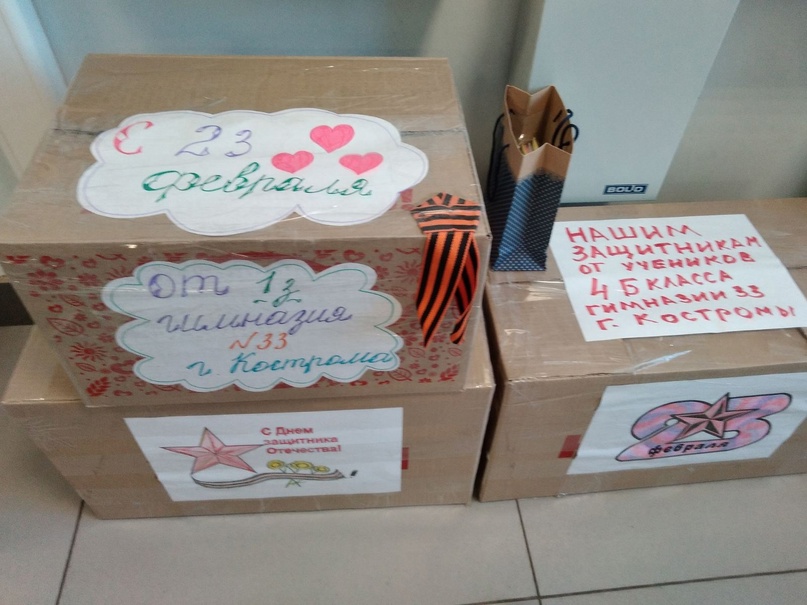 С 23
февраля
от 1з
гимназия
N33
г. Кострома
С Днем
защитника
Отечества!
BOLID
НАШИМ
ЗАЩИТНИКАМ
ОТ УЧЕНИКОВ
4 Б КЛАССА
ГИМНАЗИИ 33
Г. КОСТРОМЫ
23
февраля